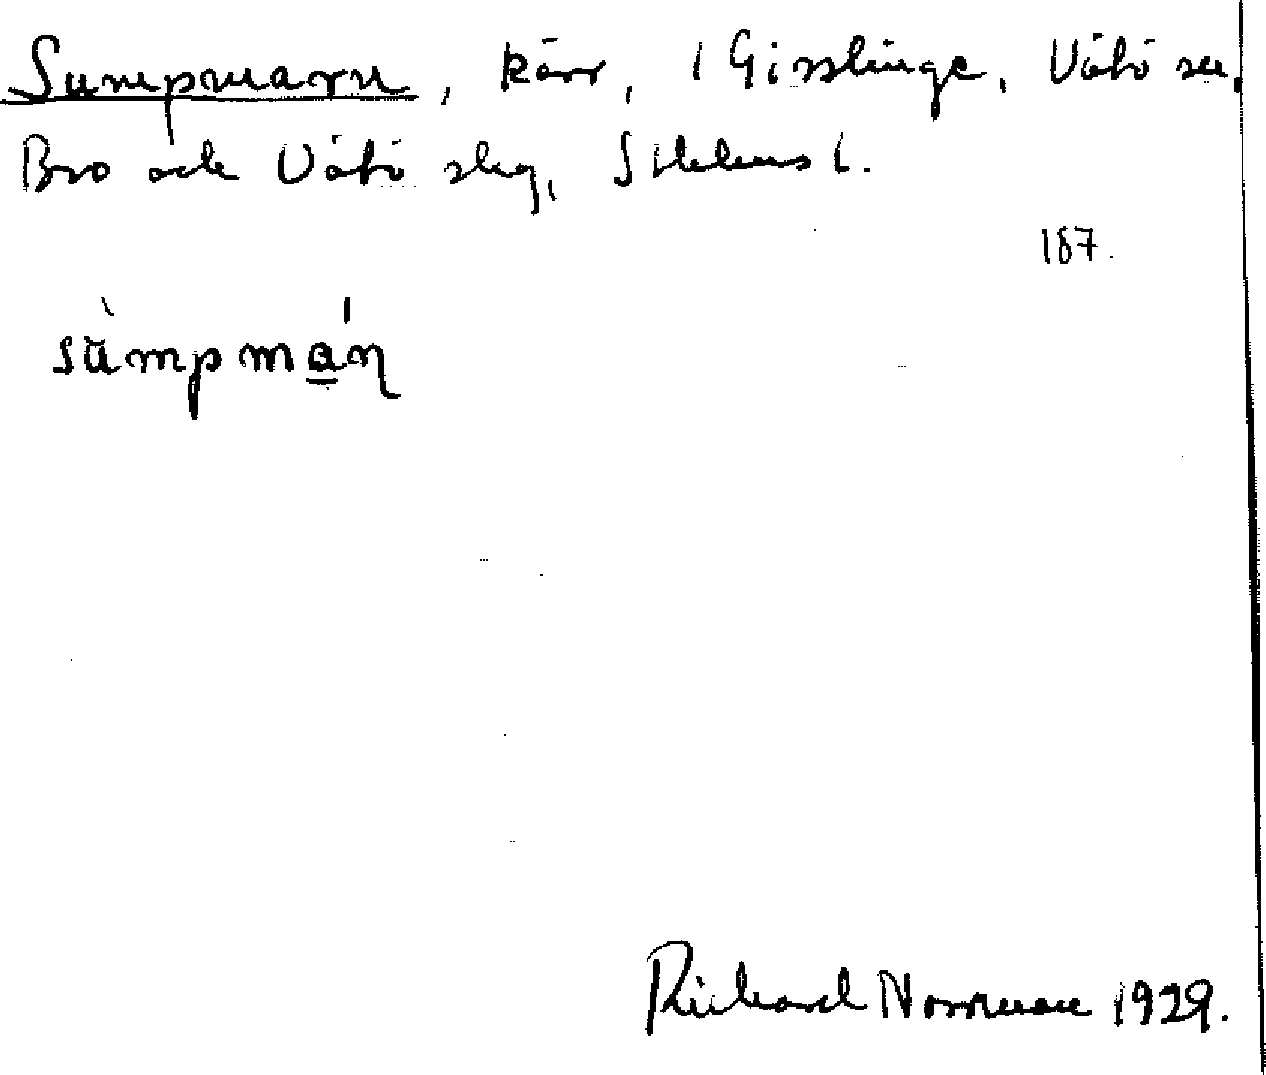 Sumpmarn, kärr, i Gisslinge, Vätö sn,
Bro och Vätö skg, Sthlms l.
187.
sùmpmáɳ
Richard Norrman 1929.